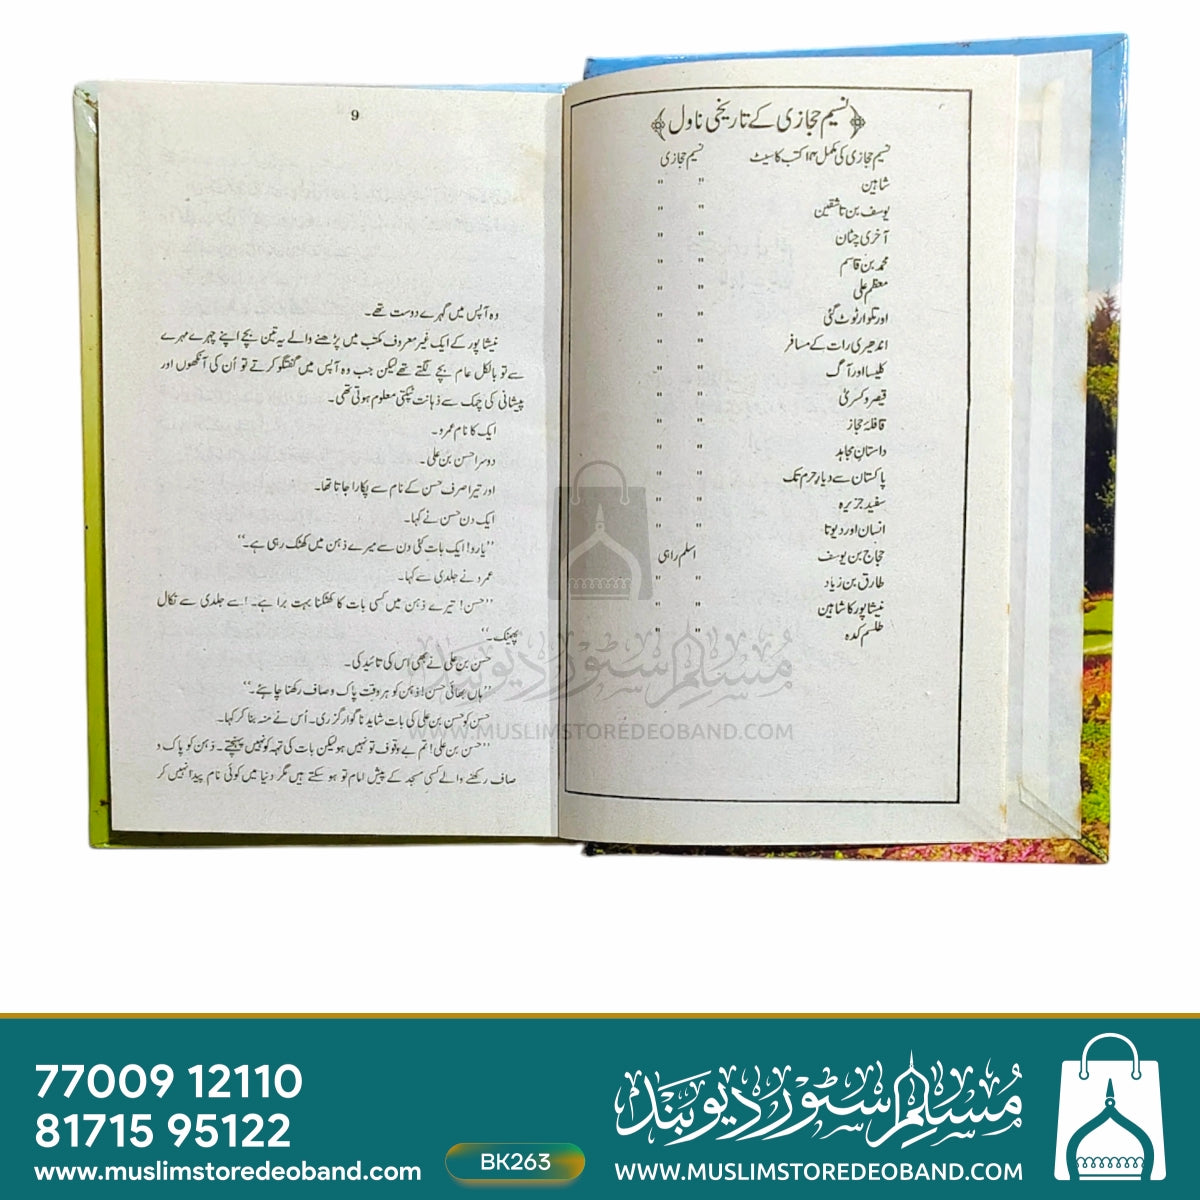 ﴿نسیم حجازی کے تاریخی ناول﴾
نسیم حجازی کی مکمل ۱۴ کتب کا سیٹ نسیم حجازی
شاہین " "
یوسف بن تاشقین " "
آخری چٹان " "
محمد بن قاسم " "
معظم علی " "
اور تلوار ٹوٹ گئی " "
اندھیری رات کے مسافر " "
کلیسا اور آگ " "
قیصر و کسریٰ " "
قافلۂ حجاز " "
داستان مجاہد " "
پاکستان سے دیار حرم تک " "
سفید جزیرہ " "
انسان اور دیوتا " "
حجاج بن یوسف اسلم راہی
طارق بن زیاد " "
نیشاپور کا شاہین " "
طلسم کدہ " "
9
وہ آپس میں گہرے دوست تھے۔
نیشاپور کے ایک غیر معروف مکتب میں پڑھنے والے یہ تین بچے اپنے چہرے مہرے
سے تو بالکل عام بچے لگتے تھے لیکن جب وہ آپس میں گفتگو کرتے تو اُن کی آنکھوں اور
پیشانی کی چمک سے ذہانت ٹپکتی معلوم ہوتی تھی۔
ایک کا نام عمرو۔
دوسرا حسن بن علی۔
اور تیرا صرف حسن کے نام سے پکارا جاتا تھا۔
ایک دن حسن نے کہا۔
’’یارو! ایک بات کئی دن سے میرے ذہن میں کھٹک رہی ہے۔‘‘
عمرو نے جلدی سے کہا۔
’’حسن! تیرے ذہن میں کسی بات کا کھٹکنا بہت برا ہے۔ اسے جلدی سے نکال
پھینک۔‘‘
حسن بن علی نے بھی اس کی تائید کی۔
’’ہاں بھائی حسن! ذہن کو ہر وقت پاک و صاف رکھنا چاہئے۔‘‘
حسن کو حسن بن علی کی بات شاید ناگوار گزری۔ اُس نے منہ بنا کر کہا۔
’’حسن بن علی! تم بے وقوف تو نہیں ہو لیکن بات کی تہہ کو نہیں پہنچتے۔ ذہن کو پاک و
صاف رکھنے والے کسی مسجد کے پیش امام تو ہو سکتے ہیں مگر دنیا میں کوئی نام پیدا نہیں کر
مُسلم سٹور دیوبند
WWW.MUSLIMSTOREDEOBAND.COM
77009 12110
81715 95122
www.muslimstoredeoband.com
BK263
مُسلم سٹور دیوبند
WWW.MUSLIMSTOREDEOBAND.COM